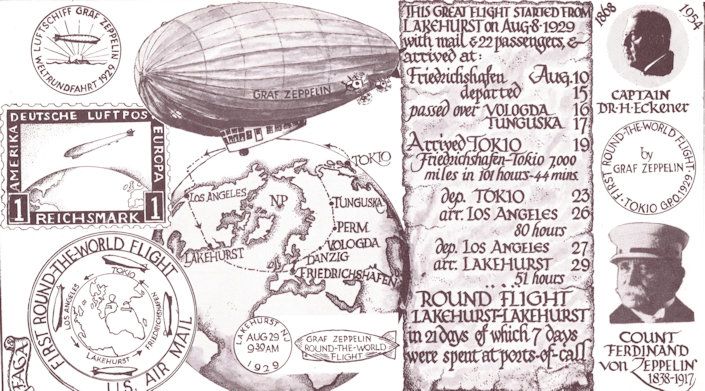 LUFTSCHIFF GRAF ZEPPELIN
WELTRUNDFAHRT 1929
DEUTSCHE LUFTPOST
AMERIKA
EUROPA
1
REICHSMARK
1
FIRST ROUND-THE-WORLD FLIGHT
U.S. AIR MAIL
TOKIO
LOS ANGELES
FRIEDRICHSHAFEN
LAKEHURST
FAGA
GRAF ZEPPELIN
TOKIO
LOS ANGELES
NP
TUNGUSKA
PERM
VOLOGDA
LAKEHURST
DANZIG
FRIEDRICHSHAFEN
LAKEHURST N.J.
AUG 29
9:30 AM
1929
GRAF ZEPPELIN
ROUND-THE-WORLD
FLIGHT
THIS GREAT FLIGHT STARTED FROM
LAKEHURST on AUG·8·1929
with mail & 22 passengers, &
arrived at:
Friedrichshafen Aug. 10
departed 15
passed over VOLOGDA 16
TUNGUSKA 17
Arrived TOKIO 19
Friedrichshafen-Tokio 7,000
miles in 101 hours-44 mins.
dep. TOKIO 23
arr. LOS ANGELES 26
80 hours
dep. LOS ANGELES 27
arr. LAKEHURST 29
51 hours
ROUND FLIGHT
LAKEHURST-LAKEHURST
in 21 days of which 7 days
were spent at ports-of-call
1868 1954
CAPTAIN
DR·H·Eckener
FIRST ROUND-THE-WORLD FLIGHT
by
GRAF ZEPPELIN
TOKIO G.P.O. 1929
COUNT
FERDINAND
von ZEPPELIN
1838-1917